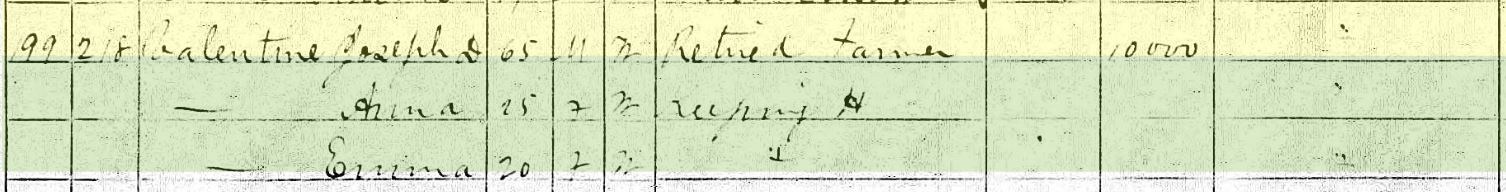 199 218 Valentine Joseph D 65 M W Retired Farmer 10000 "
— Anna 25 F W Keeping H "
— Emma 20 F W " "